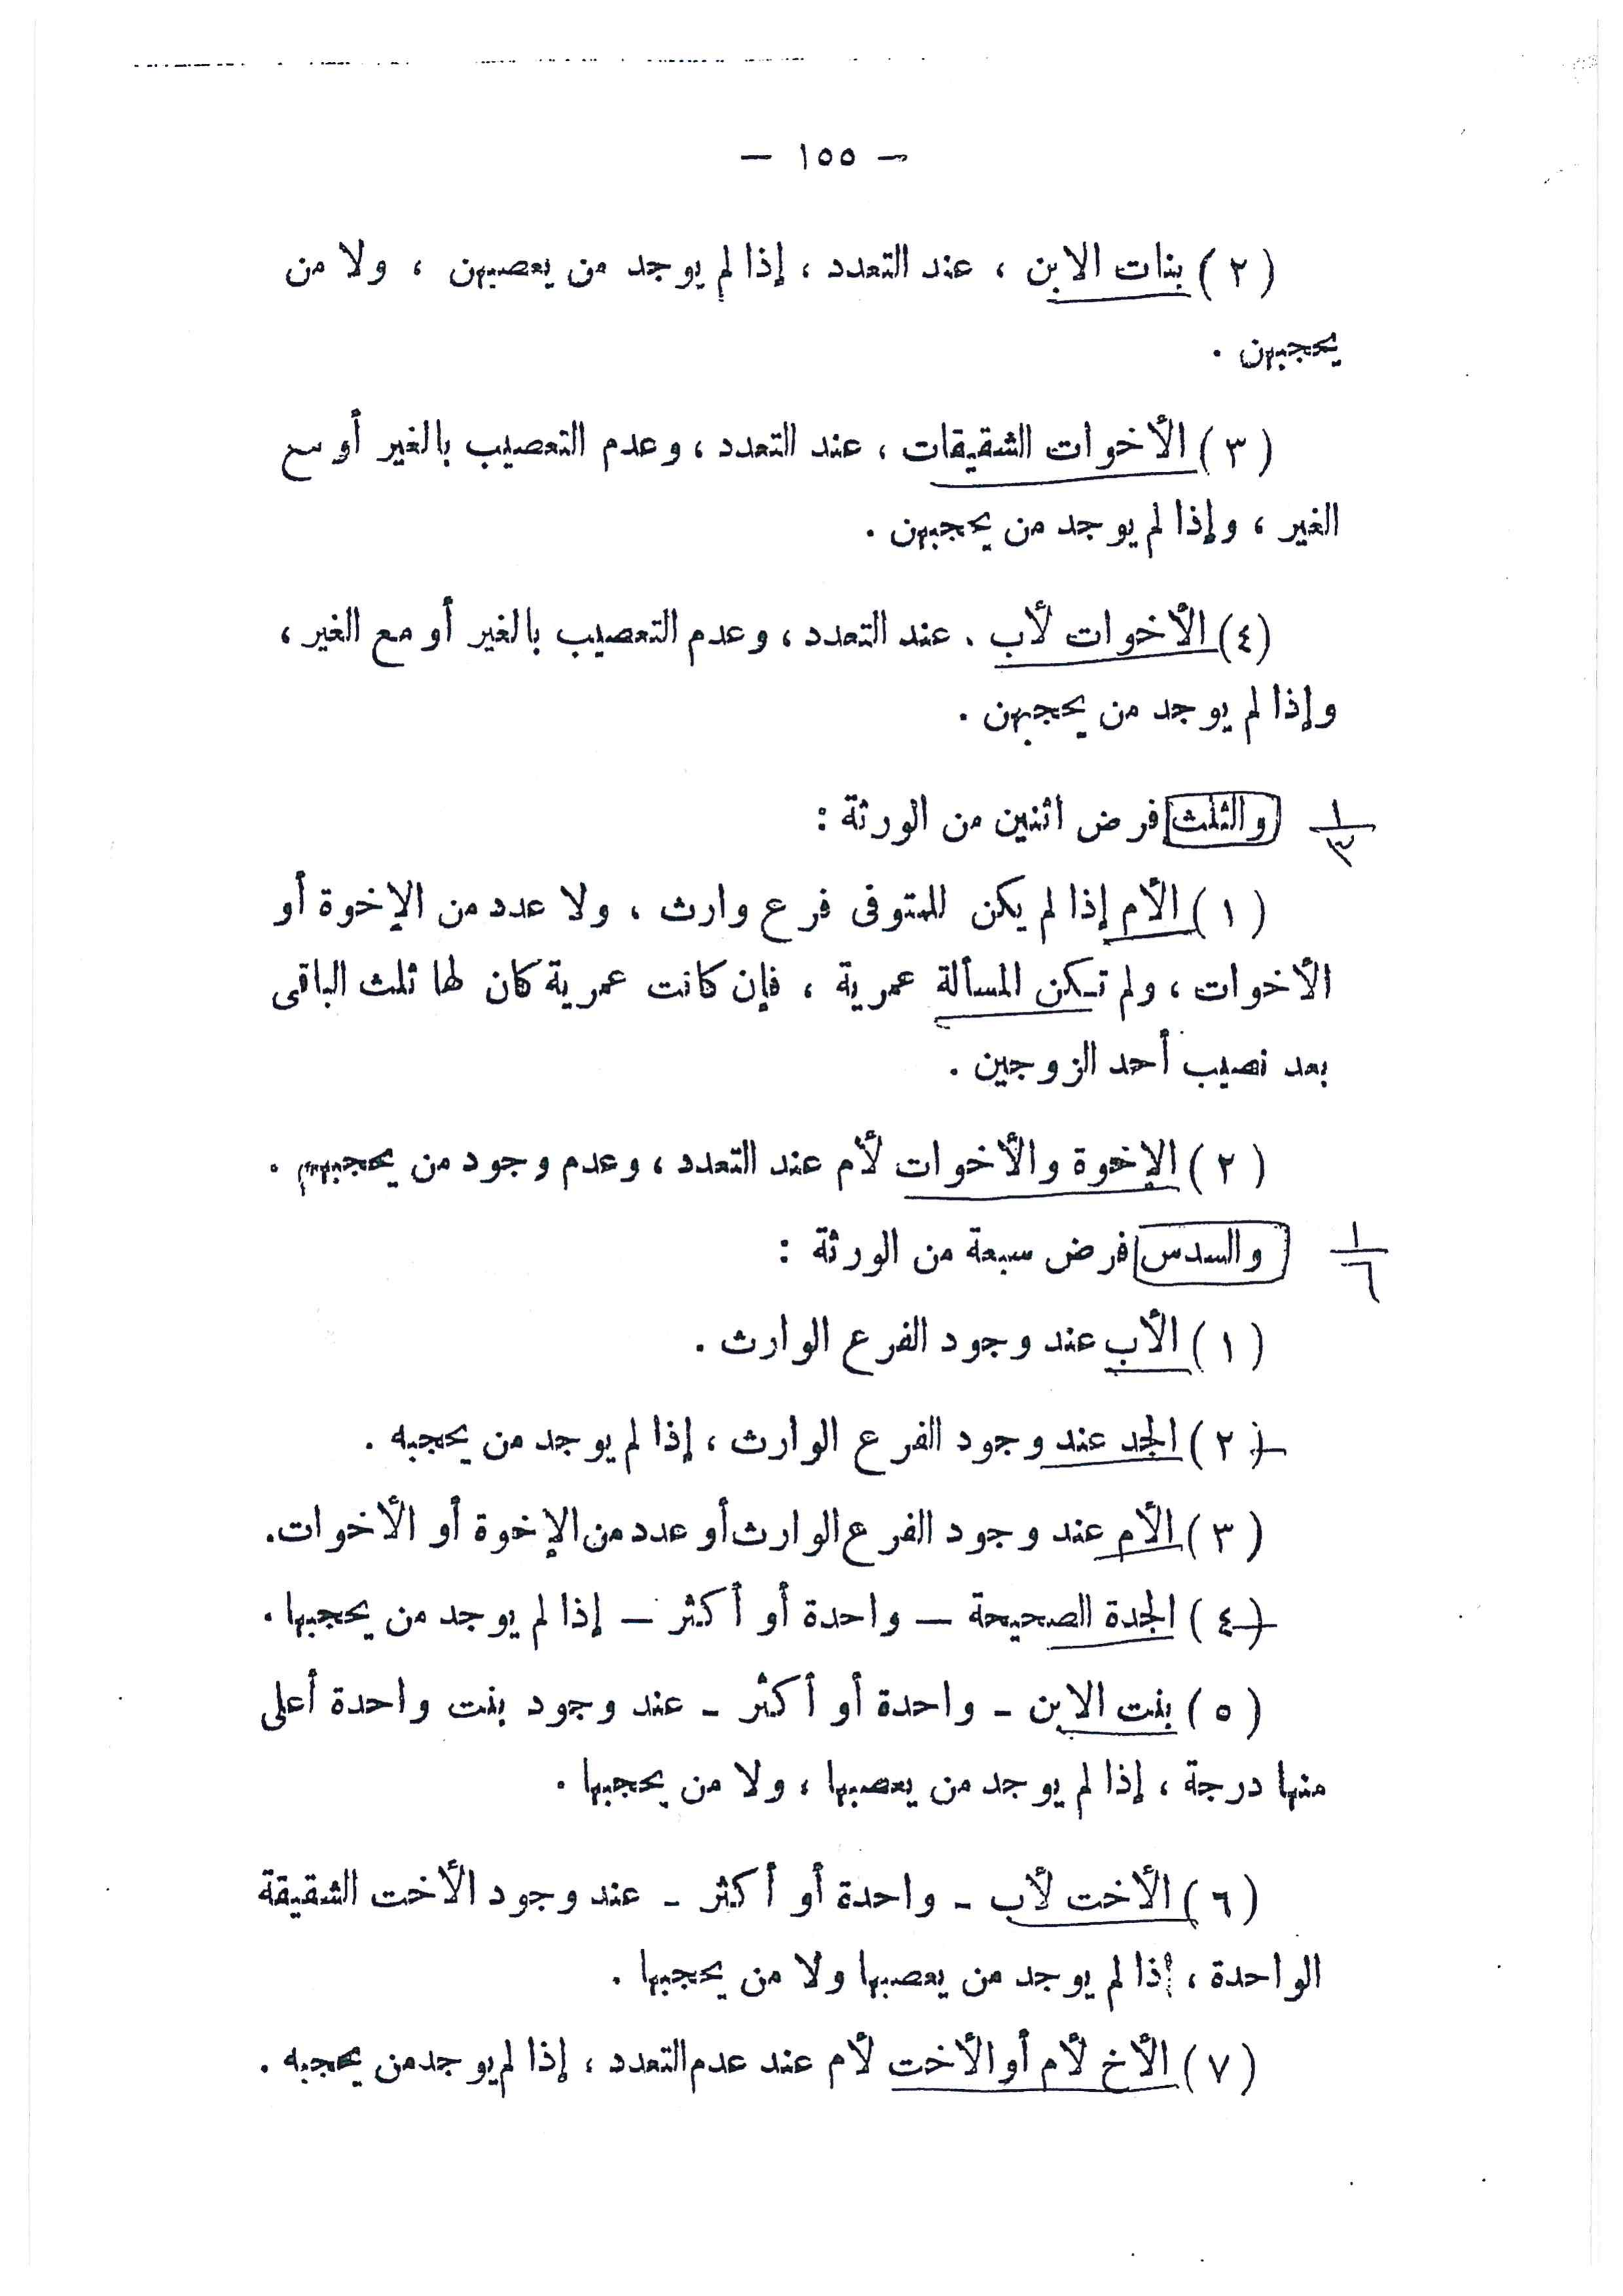 — ١٥٥ —
(٢) بنات الابن ، عند التعدد ، إذا لم يوجد من يعصبهن ، ولا من
يحجبهن .
(٣) الأخوات الشقيقات ، عند التعدد ، وعدم التعصيب بالغير أو مع
الغير ، وإذا لم يوجد من يحجبهن .
(٤) الأخوات لأب . عند التعدد ، وعدم التعصيب بالغير أو مع الغير ،
وإذا لم يوجد من يحجبهن .
١/٣ والثلث فرض اثنين من الورثة :
(١) الأم إذا لم يكن للمتوفى فرع وارث ، ولا عدد من الإخوة أو
الأخوات ، ولم تكن المسألة عمرية ، فإن كانت عمرية كان لها ثلث الباقى
بعد نصيب أحد الزوجين .
(٢) الإخوة والأخوات لأم عند التعدد ، وعدم وجود من يحجبهم .
١/٦ والسدس فرض سبعة من الورثة :
(١) الأب عند وجود الفرع الوارث .
(٢) الجد عند وجود الفرع الوارث ، إذا لم يوجد من يحجبه .
(٣) الأم عند وجود الفرع الوارث أو عدد من الإخوة أو الأخوات .
(٤) الجدة الصحيحة — واحدة أو أكثر — إذا لم يوجد من يحجبها .
(٥) بنت الابن - واحدة أو أكثر - عند وجود بنت واحدة أعلى
منها درجة ، إذا لم يوجد من يعصبها ، ولا من يحجبها .
(٦) الأخت لأب - واحدة أو أكثر - عند وجود الأخت الشقيقة
الواحدة ، إذا لم يوجد من يعصبها ولا من يحجبها .
(٧) الأخ لأم أو الأخت لأم عند عدم التعدد ، إذا لم يوجد من يحجبه .